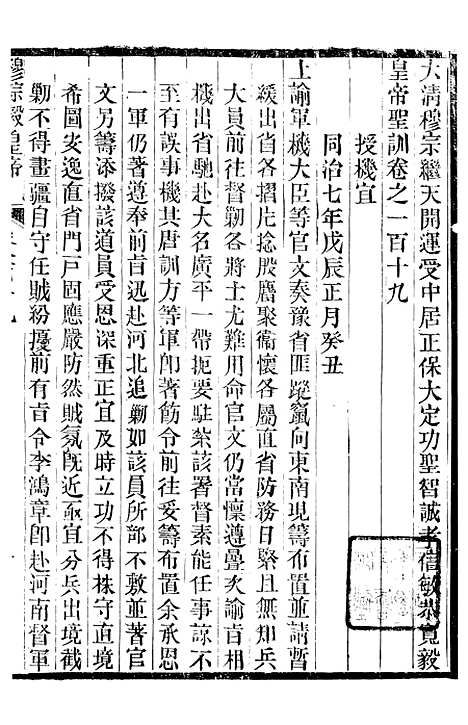 大清穆宗繼天開運受中居正保大定功聖智誠孝信敏恭寬毅
皇帝聖訓卷之一百十九
授機宜
同治七年戊辰正月癸丑
上諭軍機大臣等官文奏豫省匪蹤竄向東南現籌布置並請暫
緩出省各摺片捻股麕聚衞懷各屬直省防務日緊且無知兵
大員前往督勦各將士尤難用命官文仍當懍遵疊次諭旨相
機出省馳赴大名廣平一帶扼要駐紮該署督素能任事諒不
至有誤事機其唐訓方等軍卽著飭令前往妥籌布置余承恩
一軍仍著遵奉前旨迅赴河北追勦如該員所部不敷並著官
文另籌添撥該道員受恩深重正宜及時立功不得株守直境
希圖安逸直省門戸固應嚴防然賊氛旣近亟宜分兵出境截
勦不得畫疆自守任賊紛擾前有旨令李鴻章卽赴河南督軍
穆宗毅皇帝